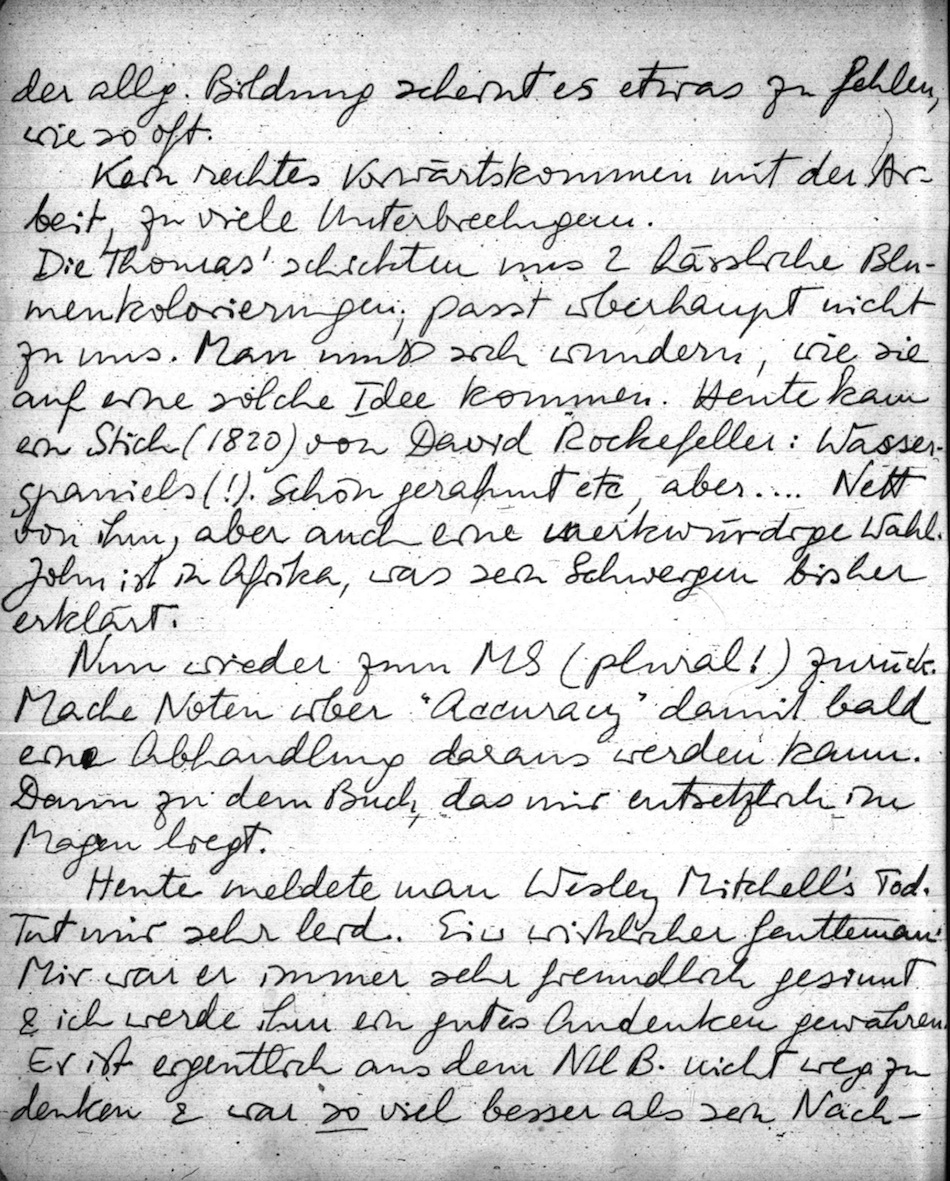 der allg. Bildung scheint es etwas zu fehlen,
wie so oft.
Kein rechtes Vorwärtskommen mit der Ar-
beit, zu viele Unterbrechngen.
Die Thomas' schickten uns 2 hässliche Blu-
menkolorierungen; passt überhaupt nicht
zu uns. Man muß sich wundern, wie sie
auf eine solche Idee kommen. Heute kam
ein Stich (1820) von David Rockefeller: Wasser-
spaniels (!). Schön gerahmt etc, aber.... Nett
von ihm, aber auch eine merkwürdige Wahl.
John ist in Afrika, was sein Schweigen bisher
erklärt.
Nun wieder zum MS (plural!) zurück.
Mache Noten über "Accuracy" damit bald
eine Abhandlung daraus werden kann.
Dann zu dem Buch, das mir entsetzlich im
Magen liegt.
Heute meldete man Wesley Mitchell's Tod.
Tut mir sehr leid. Ein wirklicher gentleman!
Mir war er immer sehr freundlich gesinnt
& ich werde ihm ein gutes Andenken gewähren.
Er ist eigentlich aus dem NB. nicht weg zu
denken & war so viel besser als sein Nach-